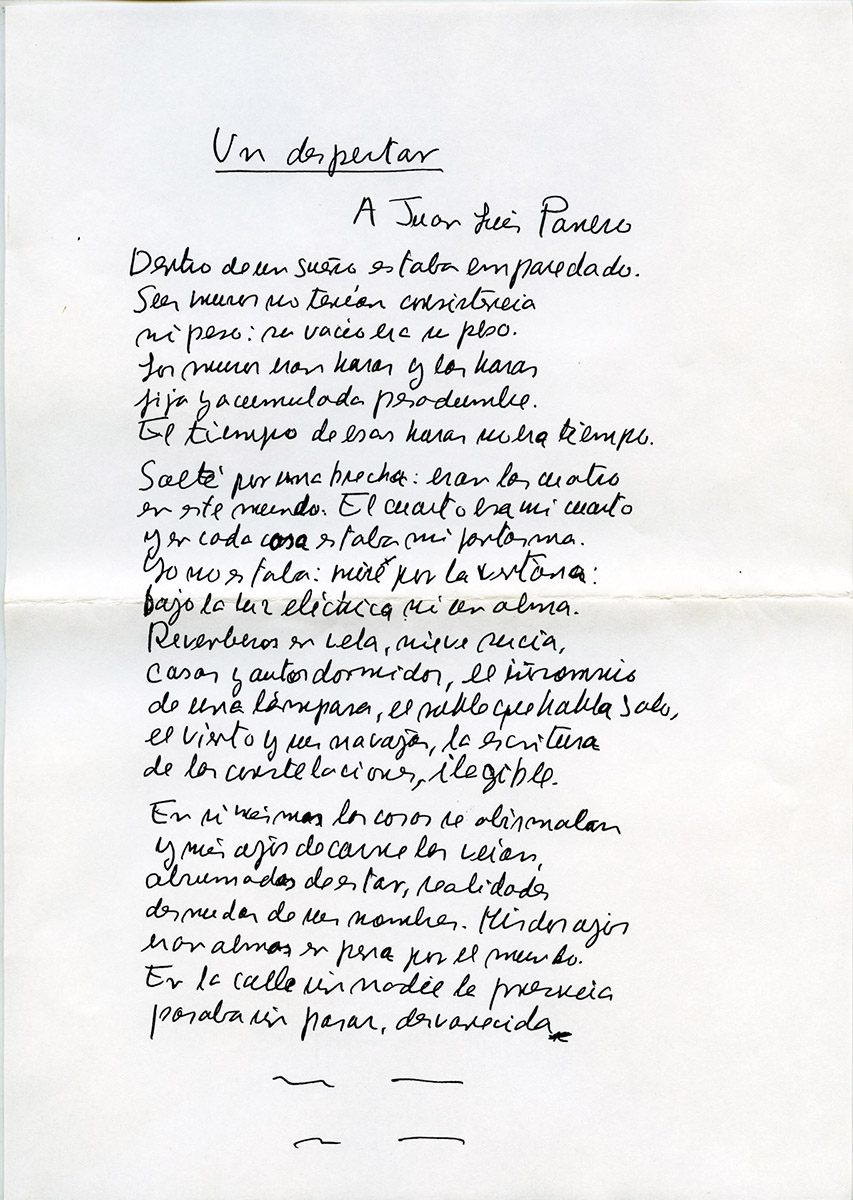 Un despertar
A Juan Luis Panero
Dentro de un sueño estaba emparedado.
Sus muros no tenían consistencia
ni peso: su vacío era su peso.
Los muros eran horas y las horas
fija y acumulada pesadumbre.
El tiempo de esas horas no era tiempo.
Salté por una brecha: eran las cuatro
en este mundo. El cuarto era mi cuarto
y en cada cosa estaba mi fantasma.
Yo no estaba: miré por la ventana:
bajo la luz eléctrica ni un alma.
Reverberos en vela, nieve sucia,
casas y autos dormidos, el insomnio
de una lámpara, el roble que habla solo,
el viento y sus navajas, la escritura
de las constelaciones, ilegible.
En sí mismas las cosas se abismaban
y mis ojos de carne las veían,
abrumadas de estar, realidades
desnudas de sus nombres. Mis dos ojos
eran almas en pena por el mundo.
En la calle sin nadie la presencia
pasaba sin pasar, desvanecida